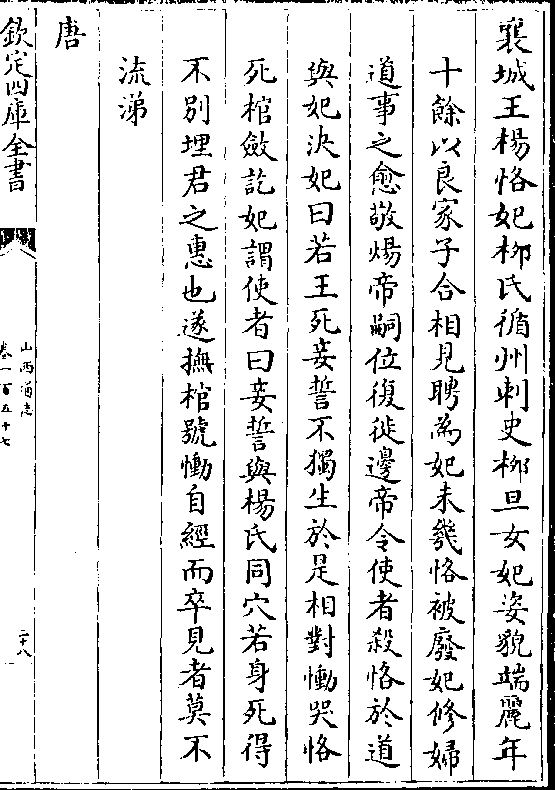 襄城王楊恪妃栁氏循州刺史栁旦女妃姿貌端麗年
十餘以良家子合相見聘為妃未幾恪被廢妃修婦
道事之愈敬煬帝嗣位復徙邊帝令使者殺恪於道
與妃决妃曰若王死妾誓不獨生於是相對慟哭恪
死棺斂訖妃謂使者曰妾誓與楊氏同穴若身死得
不别埋君之惠也遂撫棺號慟自經而卒見者莫不
流涕
唐
欽定四庫全書
山西通志
卷一百五十七
二十八